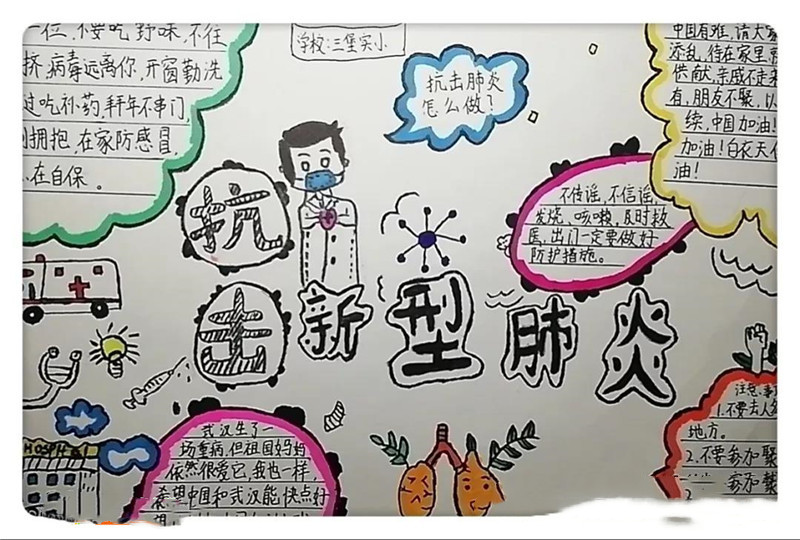 一位,不要吃野味,不往
挤,病毒远离你,开窗勤洗
过吃补药,拜年不串门,
拥抱,在家防感冒,
在自保。
学校:三堡实小
抗击肺炎
怎么做?
中国有难,请大家
添乱,待在家里,
供献,亲戚不走来
有,朋友不聚,以
续,中国加油!
加油!白衣天使
油!
不传谣,不信谣,
发烧,咳嗽,及时救
医,出门一定要做好
防护措施。
抗
击新型肺炎
武汉生了一
场重病,但祖国妈妈
依然很爱它,我也一样,
希望中国和武汉能快点好
HOSPITAL
注意事
1.不要去人多
地方。
2.不要参加聚
参加